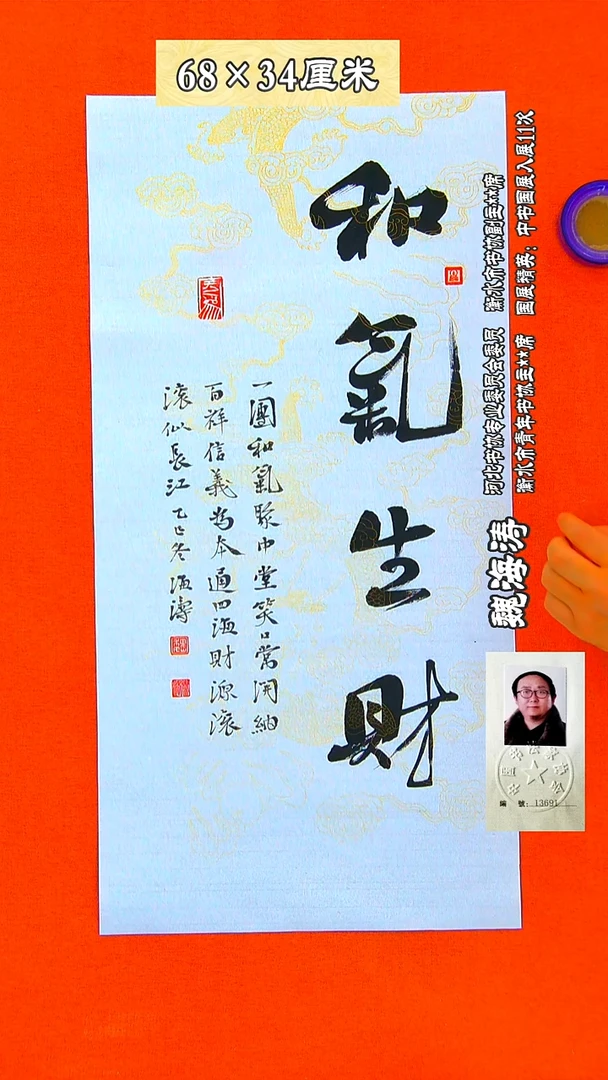 68×34厘米
和氣生財
一團和氣聚中堂笑口常開納
百祥信義為本通四海財源滾
滾似長江乙巳冬海濤
国展精英：中书国展入展11次
衡水市青年书协主**席
衡水市书协副主**席
河北书协专业委员会委员
魏海涛
编 號：13691